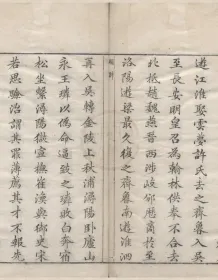 遊江淮娶雲夢許氏去之齊魯入吳
至長安明皇召為翰林供奉不合去
北抵趙魏燕晉西涉岐邠歷商於至
洛陽遊梁最久復之齊魯南遊淮泗
再入吳轉金陵上秋浦潯陽卧廬山
永王璘以偽命逼致之璘敗白奔宿
松坐繫潯陽獄宣撫崔渙與御史宋
若思驗治謂其罪薄薦其才不報先